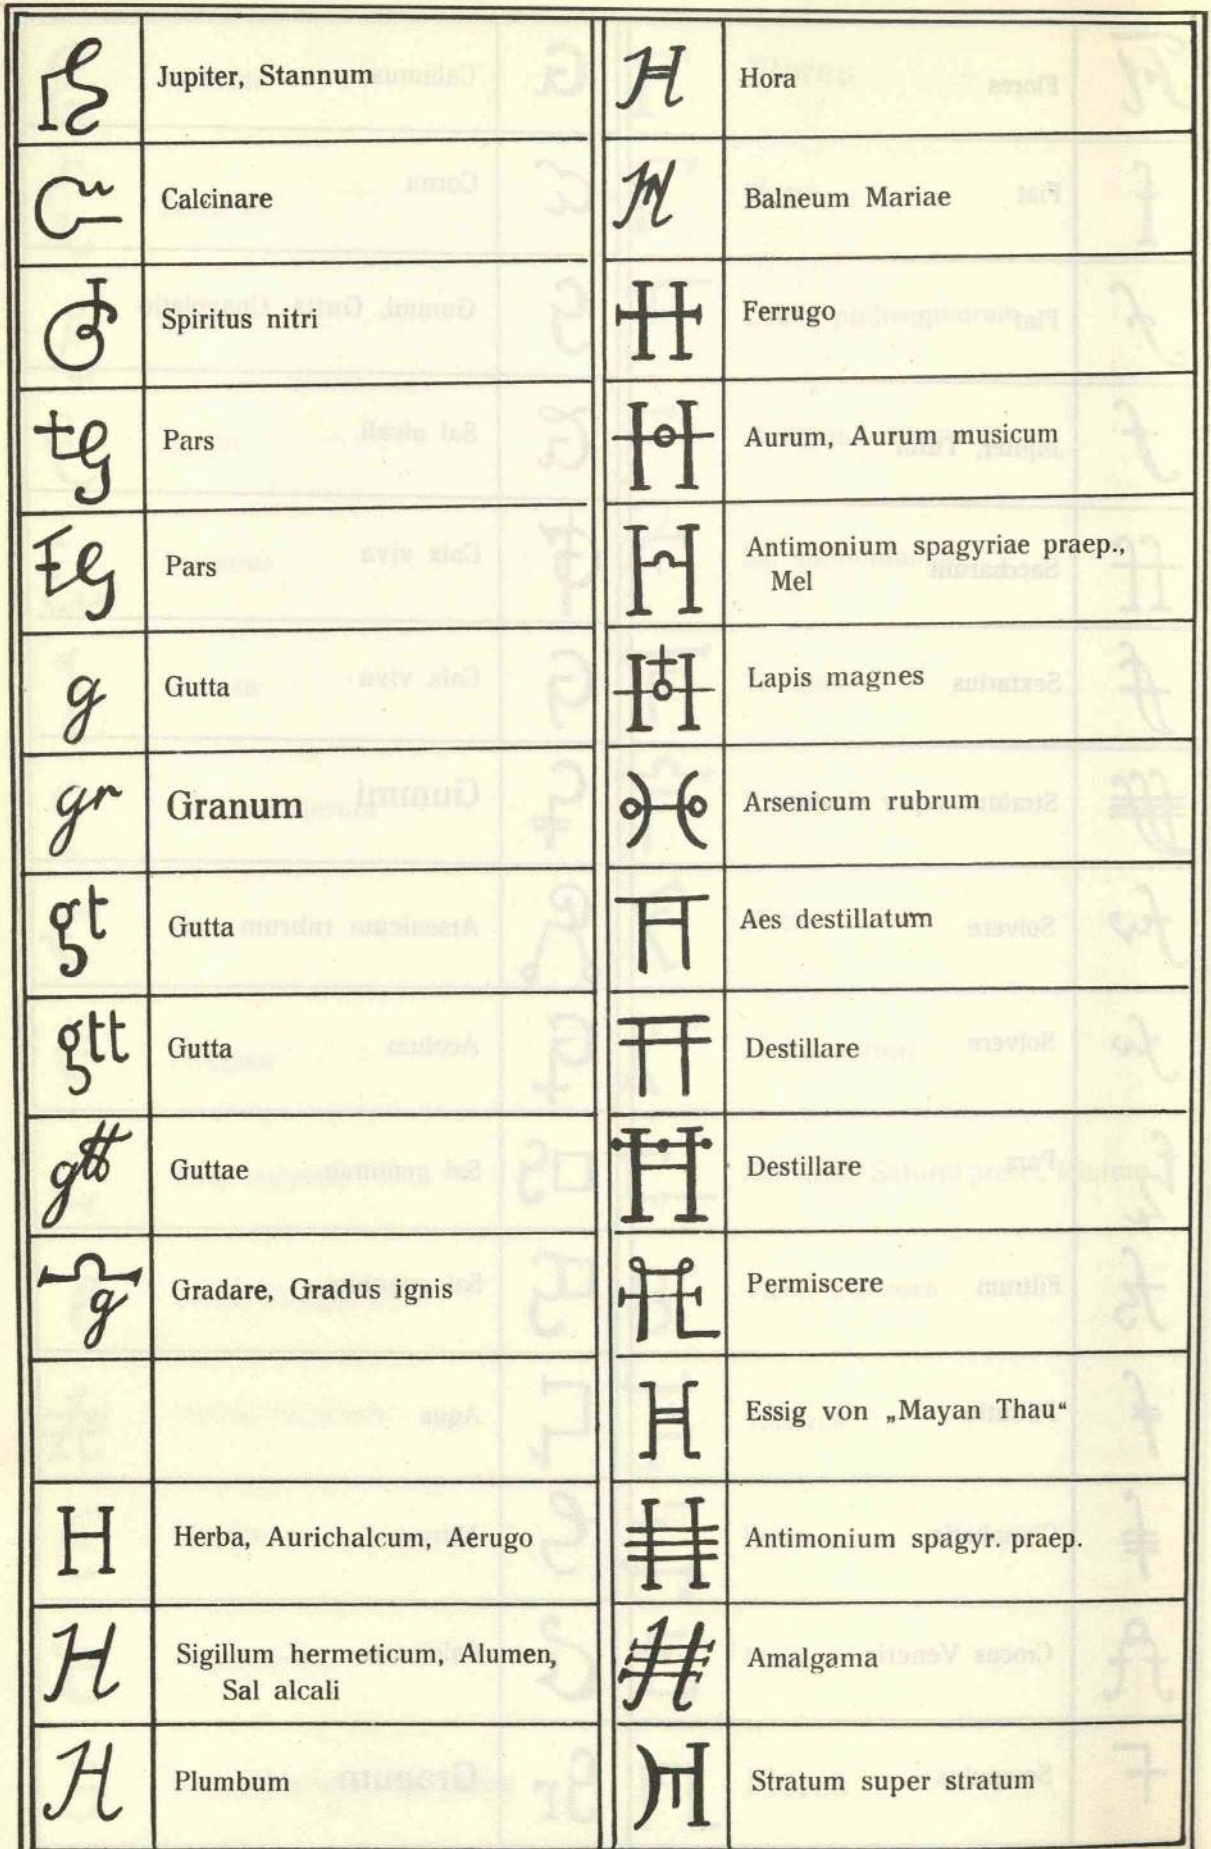 Jupiter, Stannum
Calcinare
Spiritus nitri
Pars
Pars
g Gutta
gr Granum
gt Gutta
gtt Gutta
gtt Guttae
g Gradare, Gradus ignis
H Herba, Aurichalcum, Aerugo
H Sigillum hermeticum, Alumen,
Sal alcali
H Plumbum
H Hora
Balneum Mariae
Ferrugo
Aurum, Aurum musicum
Antimonium spagyriae praep.,
Mel
Lapis magnes
Arsenicum rubrum
Aes destillatum
Destillare
Destillare
Permiscere
Essig von „Mayan Thau“
Antimonium spagyr. praep.
Amalgama
Stratum super stratum